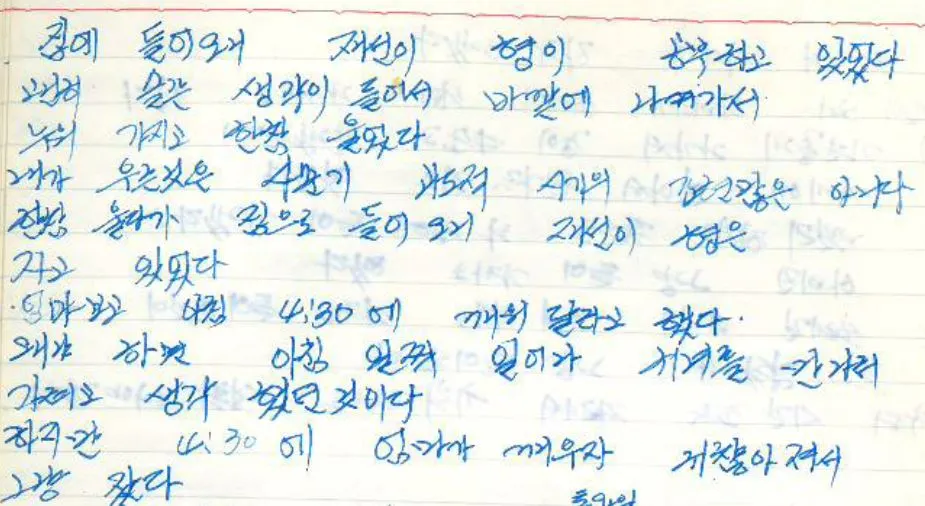 집에 들어오니 재선이 형이 공부하고 있었다
괜히 슬픈 생각이 들어서 바깥에 나가서
누워 가지고 한참 울었다
내가 우는것은 사춘기 과도적 시기의 같은 아니다
한참 울다가 집으로 들어오니 재선이 형은
자고 있었다
엄마보고 아침 4:30에 깨워 달라고 했다.
왜냐 하면 아침 일찍 일어나 거리를
가려고 생각 했던 것이다
하지만 4:30에 엄마가 깨우자 귀찮아 져서
그냥 잤다